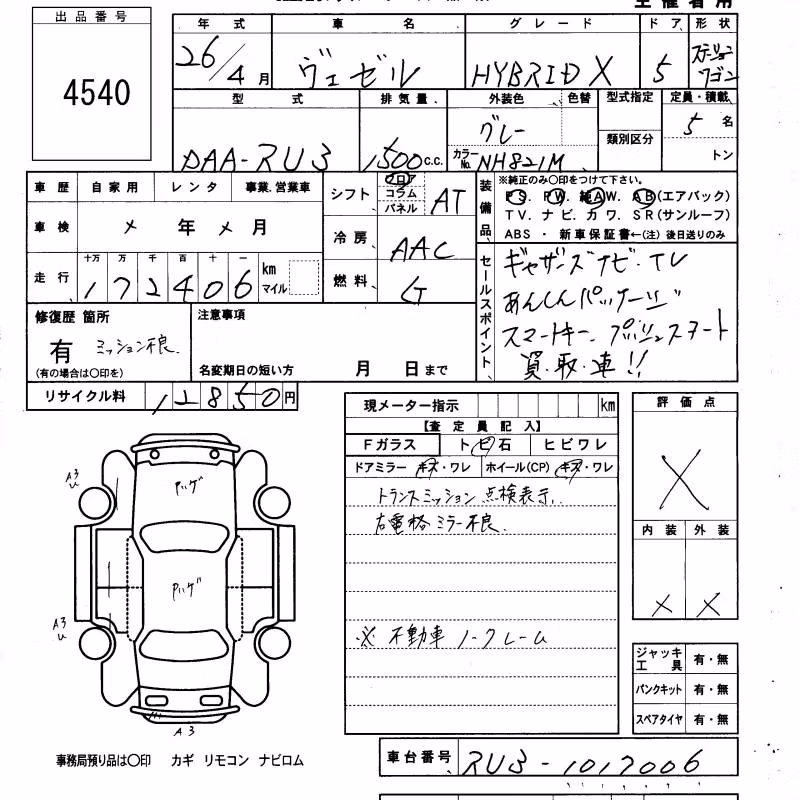 主催者用
出品番号
4540
年式 車名 グレード ドア 形状
26/4月 ヴェゼル HYBRID X 5 ステーションワゴン
型式 排気量 外装色 色替 型式指定 定員・積載
DAA-RU3 1500c.c. グレー カラーNo. NH821M 類別区分 5名
トン
車歴 自家用 レンタ 事業.営業車
車検 × 年 × 月
走行 十万 万 千 百 十 一
172406 km マイル
シフト フロア コラム パネル AT
冷房 AAC
燃料 G
装備品
※純正のみ○印をつけて下さい。
PS. PW. 純AW. AB(エアバック)
TV. ナビ. カワ. SR(サンルーフ)
ABS ・ 新車保証書←(注) 後日送りのみ
セールスポイント、
ギャザーズナビ・TV
あんしんパッケージ
スマートキー、プッシュスタート
買.取.車!!
修復歴 箇所
有 ミッション不良.
(有の場合は○印を)
注意事項
名変期日の短い方 月 日まで
リサイクル料 12850円
現メーター指示 km
【査定員記入】
Fガラス トビ石 ヒビワレ
ドアミラー キズ・ワレ ホイール(CP) キズ・ワレ
トランスミッション点検表示.
右電格ミラー不良.
※ 不動車 ノークレーム
評価点
×
内装 外装
× ×
ジャッキ工具 有・無
パンクキット 有・無
スペアタイヤ 有・無
A3
U
A3
U
A3
事務局預り品は○印 カギ リモコン ナビロム
車台番号 RU3-1017006